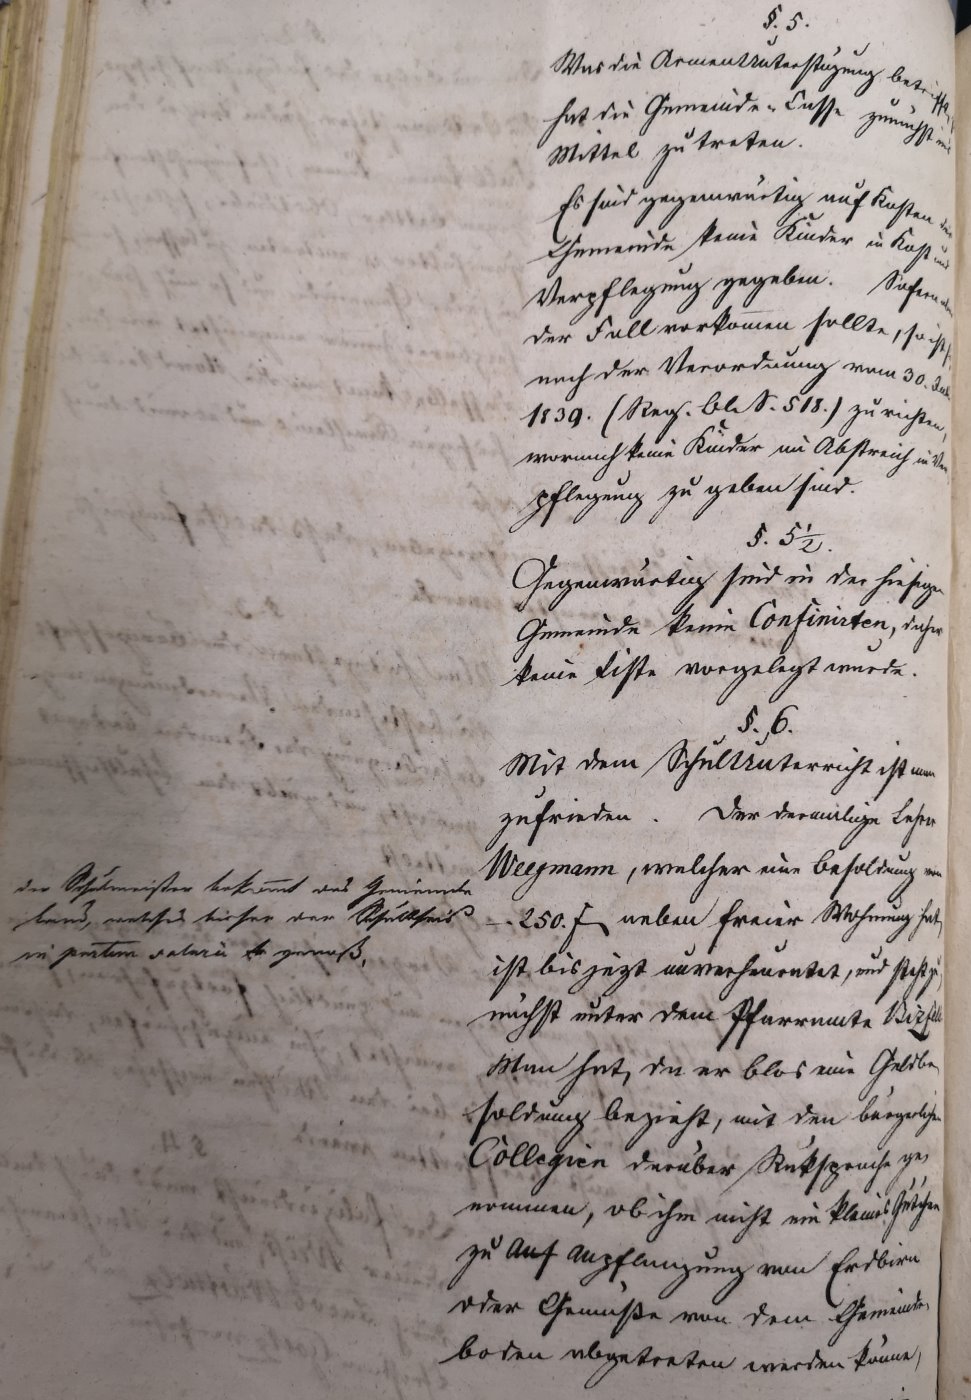 §. 5.
Was die Armenunterstüzung betrifft,
hat die Gemeinde-Casse zunächst in's
Mittel zu treten.
Es sind gegenwärtig auf Kosten der
Gemeinde keine Kinder in Kost und
Verpflegung gegeben. Sofern aber
der Fall vorkommen sollte, so ist sich
nach der Verordnung vom 30.
1839. (Reg. Bl. S. 518.) zu richten,
wornach keine Kinder im Abstreich in Ver
pflegung zu geben sind.
§. 5 1/2.
Gegenwärtig sind in der hiesigen
Gemeinde keine Confinirten, daher
keine Liste vorgelegt wurde.
§. 6.
Mit dem Schulunterricht ist man
zufrieden. Der dermalige Lehrer
Weegmann, welcher eine Besoldung von
-. 250. f neben freier Wohnung hat,
ist bis jezt unverheurathet, und steht zu
nächst unter dem Pfarramte
Man hat, da er blos eine Geldbe
soldung bezieht, mit den bürgerlichen
Collegien darüber Rüksprache ge,
nommen, ob ihm nicht ein kleines Gütchen
zu Anpflanzung von Erdbirn
oder Gemüße von dem Gemeinde,
boden abgetreten werden könne,
der Schulmeister bekommt das Gemeinde
land, welches bisher der Schultheiß
in partem salarii genoß.